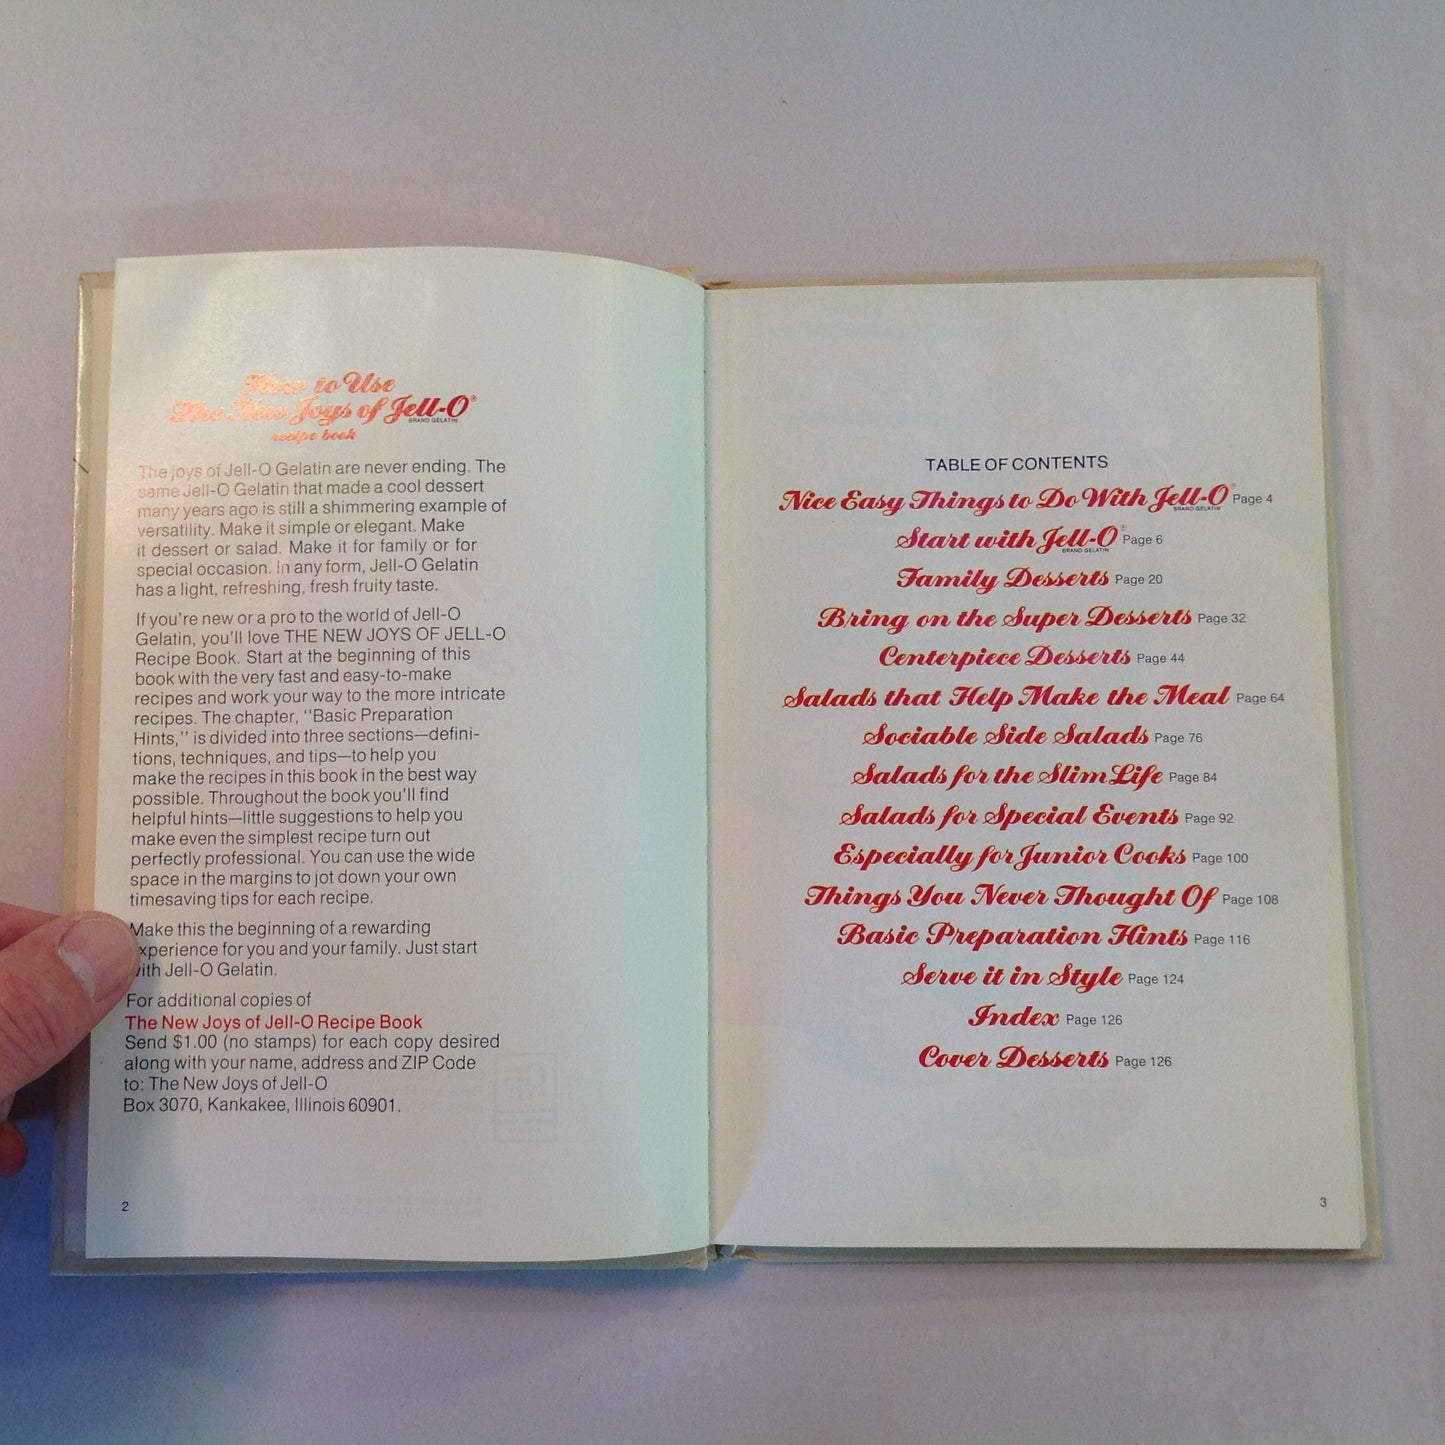 How to Use
The New Joys of Jell-O®
BRAND GELATIN
recipe book
The joys of Jell-O Gelatin are never ending. The
same Jell-O Gelatin that made a cool dessert
many years ago is still a shimmering example of
versatility. Make it simple or elegant. Make
it dessert or salad. Make it for family or for
special occasion. In any form, Jell-O Gelatin
has a light, refreshing, fresh fruity taste.
If you're new or a pro to the world of Jell-O
Gelatin, you'll love THE NEW JOYS OF JELL-O
Recipe Book. Start at the beginning of this
book with the very fast and easy-to-make
recipes and work your way to the more intricate
recipes. The chapter, "Basic Preparation
Hints," is divided into three sections—defini-
tions, techniques, and tips—to help you
make the recipes in this book in the best way
possible. Throughout the book you'll find
helpful hints—little suggestions to help you
make even the simplest recipe turn out
perfectly professional. You can use the wide
space in the margins to jot down your own
timesaving tips for each recipe.
Make this the beginning of a rewarding
experience for you and your family. Just start
with Jell-O Gelatin.
For additional copies of
The New Joys of Jell-O Recipe Book
Send $1.00 (no stamps) for each copy desired
along with your name, address and ZIP Code
to: The New Joys of Jell-O
Box 3070, Kankakee, Illinois 60901.
2
TABLE OF CONTENTS
Nice Easy Things to Do With Jell-O® Page 4
BRAND GELATIN
Start with Jell-O® Page 6
BRAND GELATIN
Family Desserts Page 20
Bring on the Super Desserts Page 32
Centerpiece Desserts Page 44
Salads that Help Make the Meal Page 64
Sociable Side Salads Page 76
Salads for the Slim Life Page 84
Salads for Special Events Page 92
Especially for Junior Cooks Page 100
Things You Never Thought Of Page 108
Basic Preparation Hints Page 116
Serve it in Style Page 124
Index Page 126
Cover Desserts Page 126
3